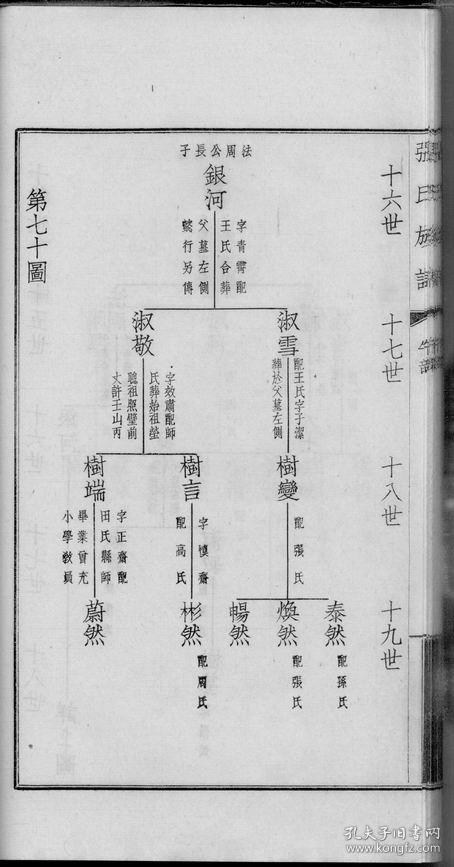 張氏族譜
十六世
十七世
十八世
十九世
法周公長子
銀河
字青霄配
王氏合葬
父墓左側
懿行另傳
淑雪
配王氏字子潔
葬於父墓左側
淑敬
字效肅配師
氏葬始祖塋
聽祖照壁前
丈許壬山丙
樹變
配張氏
樹言
字慎齋
配高氏
樹端
字正齋配
田氏縣師
畢業曾充
小學教員
泰然
配孫氏
煥然
配張氏
暢然
彬然
配周氏
蔚然
第七十圖
孔夫子旧書网
www.kongfz.com